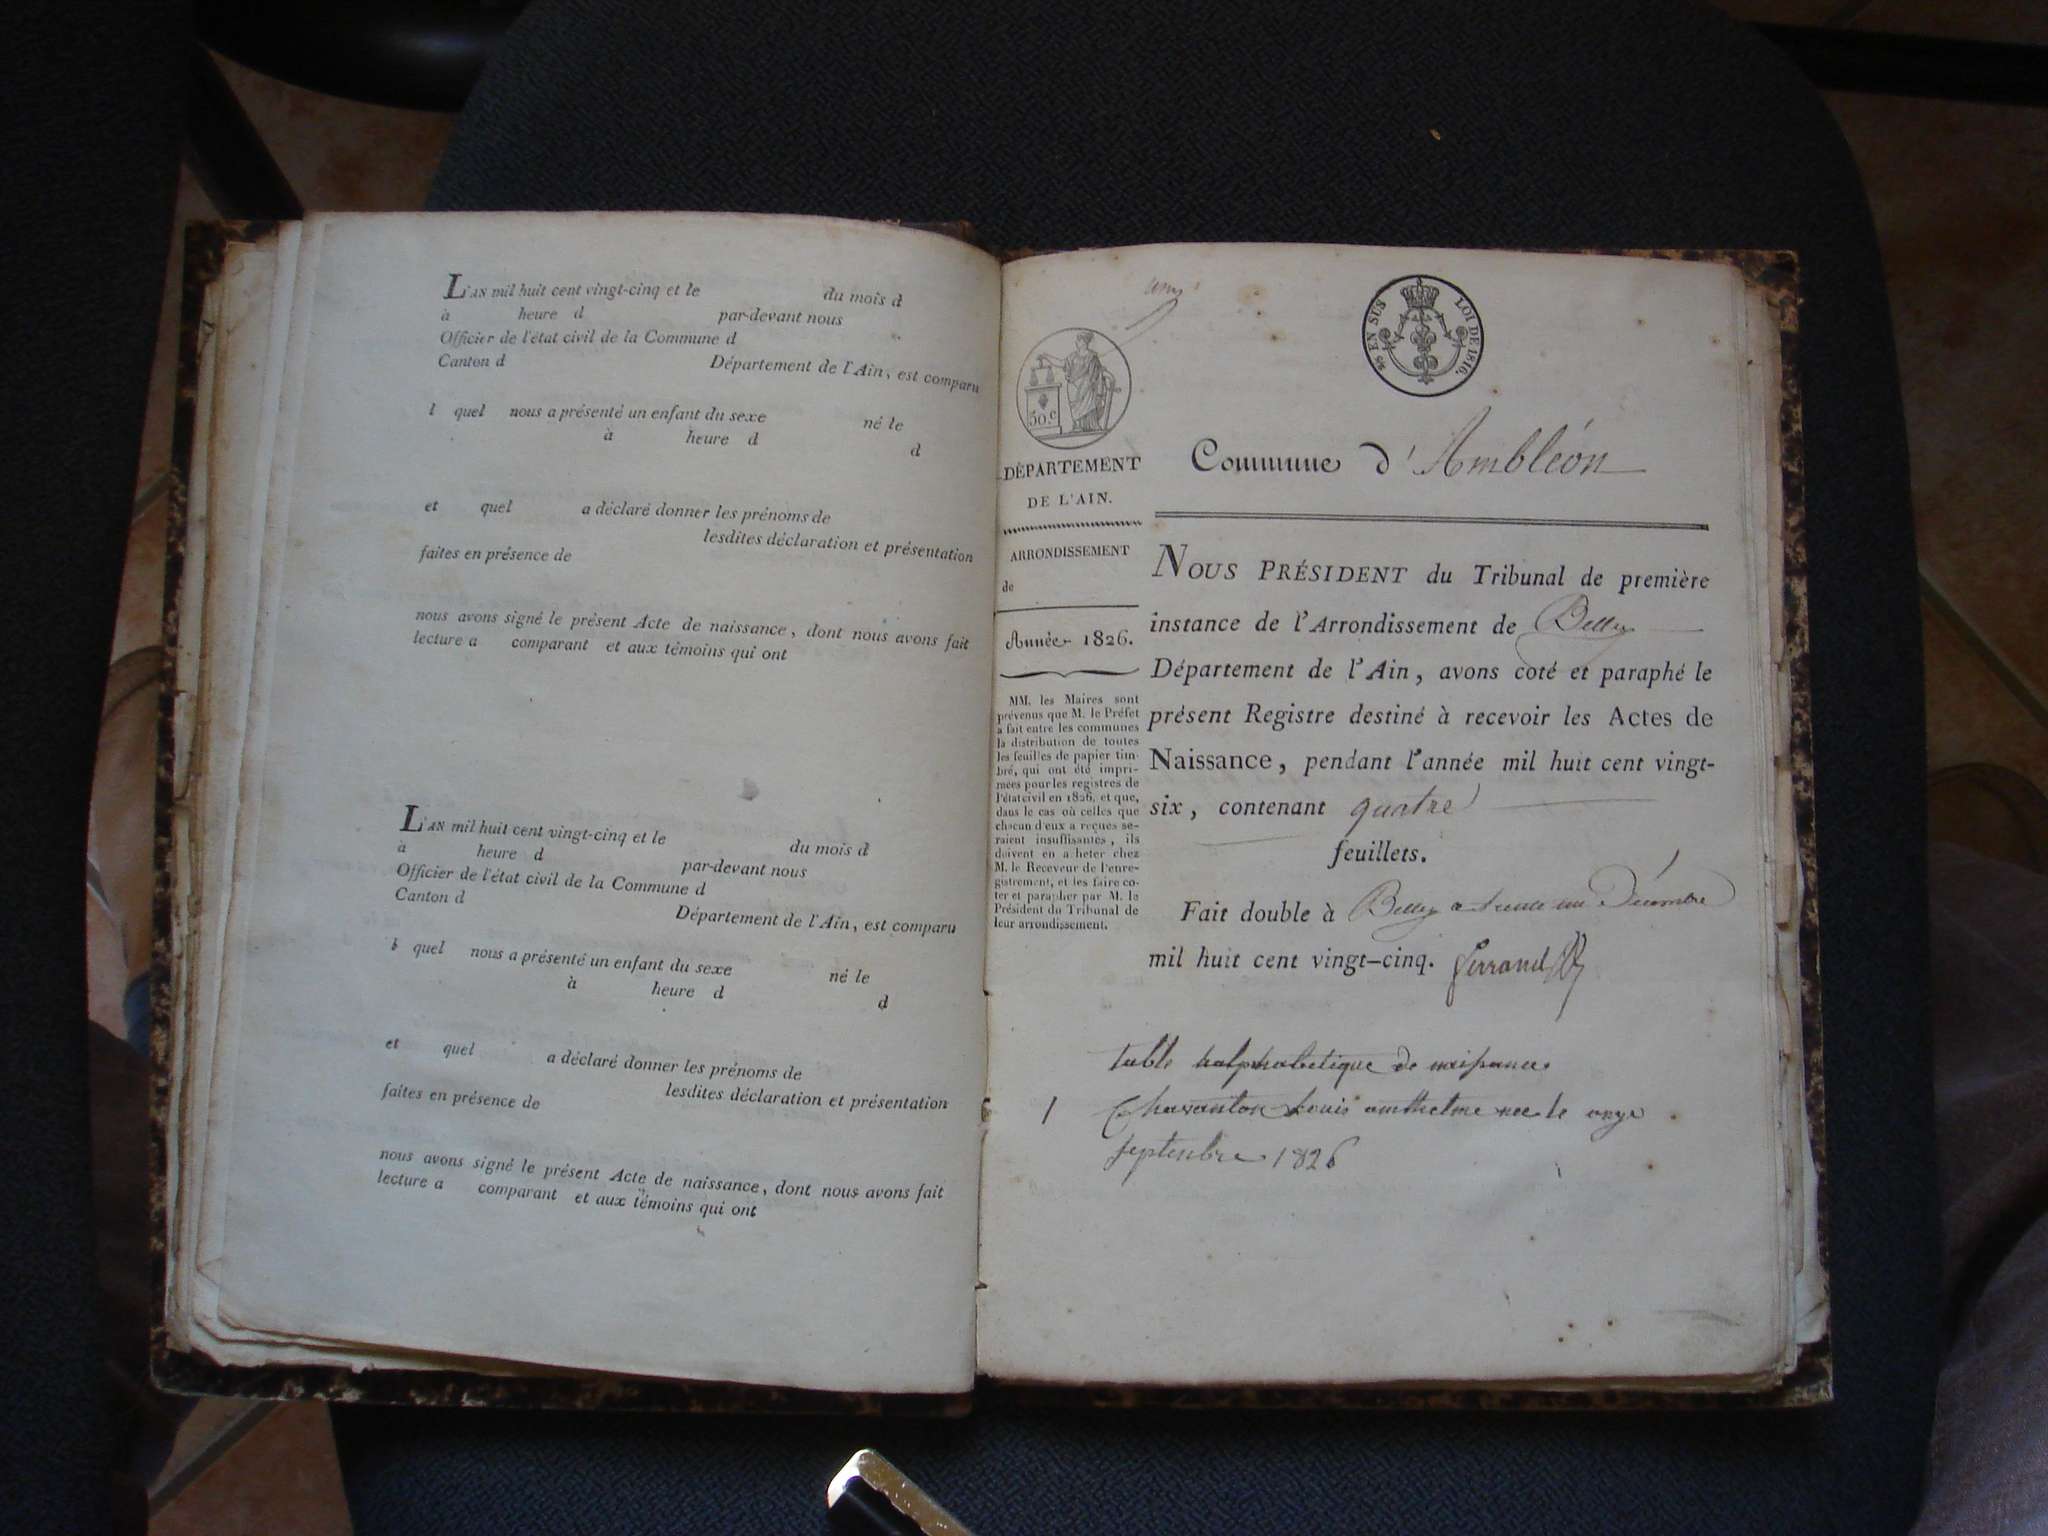 L'AN mil huit cent vingt-cinq et le du mois d
à heure d par-devant nous
Officier de l'état civil de la Commune d
Canton d Département de l'Ain, est comparu
l quel nous a présenté un enfant du sexe né le
à heure d d
et quel a déclaré donner les prénoms de
lesdites déclaration et présentation
faites en présence de
nous avons signé le présent Acte de naissance, dont nous avons fait
lecture a comparant et aux témoins qui ont
L'AN mil huit cent vingt-cinq et le du mois d
à heure d par-devant nous
Officier de l'état civil de la Commune d
Canton d Département de l'Ain, est comparu
l quel nous a présenté un enfant du sexe né le
à heure d d
et quel a déclaré donner les prénoms de
lesdites déclaration et présentation
faites en présence de
nous avons signé le présent Acte de naissance, dont nous avons fait
lecture a comparant et aux témoins qui ont
EN SUS LOI DE 1816.
50.c
DÉPARTEMENT
DE L'AIN.
ARRONDISSEMENT
de
Année 1826.
MM. les Maires sont
prévenus que M. le Préfet
a fait entre les communes
la distribution de toutes
les feuilles de papier tim-
bré, qui ont été impri-
mées pour les registres de
l'état civil en 1826, et que,
dans le cas où celles que
chacun d'eux a reçues se-
raient insuffisantes, ils
doivent en a heter chez
M. le Receveur de l'enre-
gistrement, et les faire co-
ter et parapher par M. le
Président du Tribunal de
leur arrondissement.
Commune d'Ambléon
NOUS PRÉSIDENT du Tribunal de première
instance de l'Arrondissement de Belley
Département de l'Ain, avons coté et paraphé le
présent Registre destiné à recevoir les Actes de
Naissance, pendant l'année mil huit cent vingt-
six, contenant quatre
feuillets.
Fait double à Belley le trente un Décembre
mil huit cent vingt-cinq. Ferrand
table halphabetique de naissance
1 Chavanton Louis anthelme nee le onze
septenbre 1826